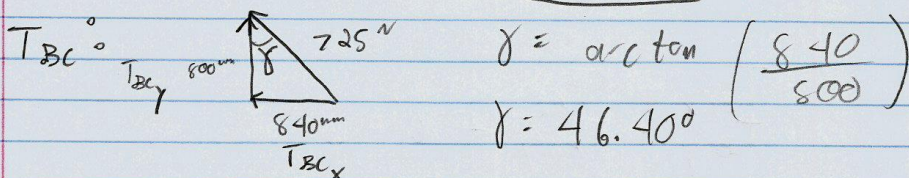 T_BC:
T_BCy 800mm γ 725 N
840mm
T_BCx
γ = arctan (840/800)
γ = 46.40°